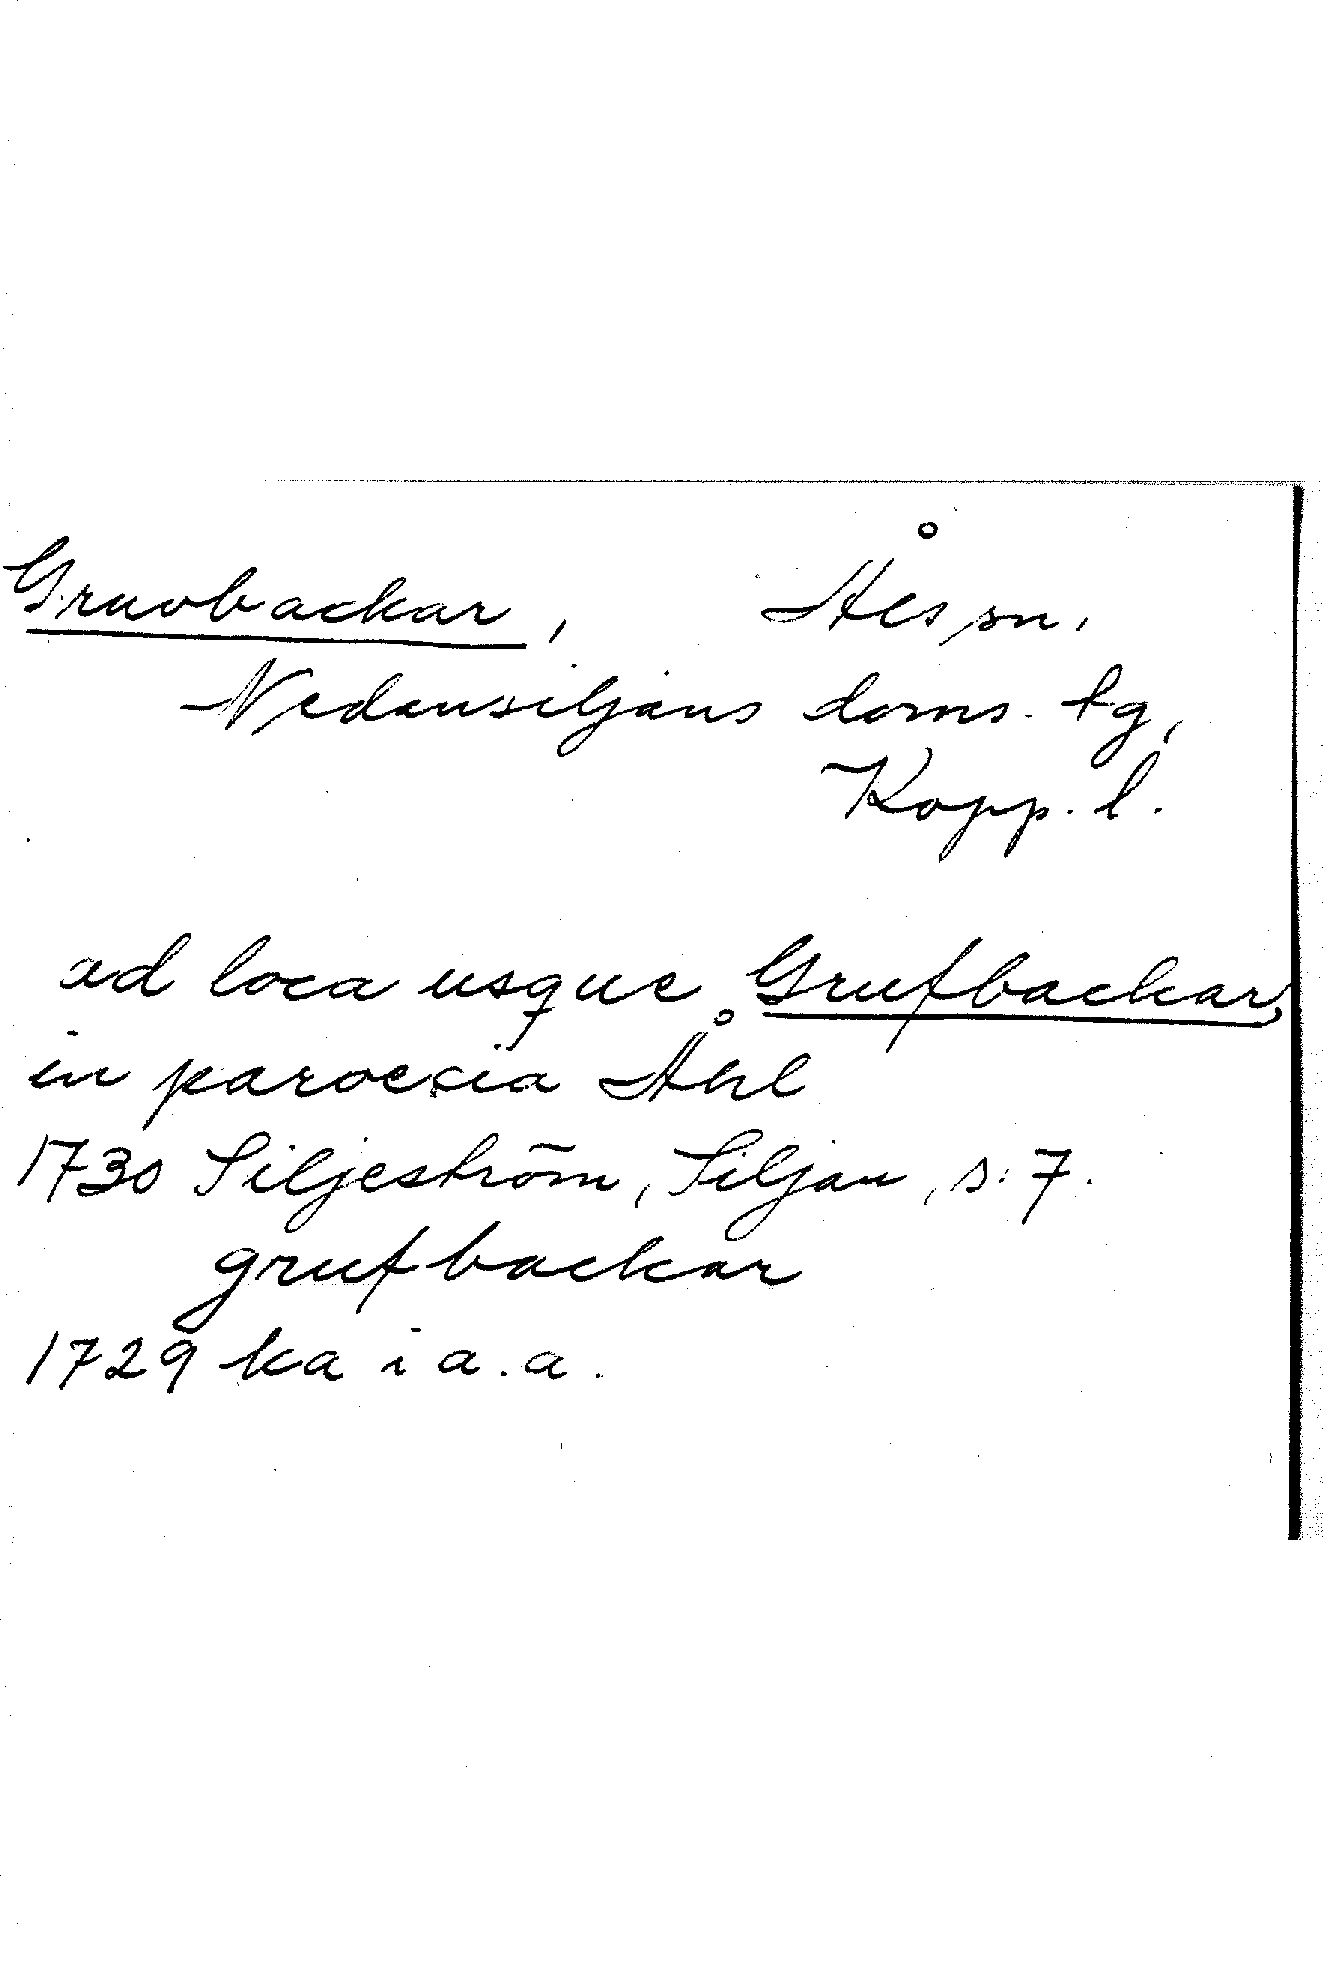 Gruvbackar, Åls sn,
Nedansiljans doms. tg,
Kopp. l.
ad loca usque Grufbackar,
in paroecia Åhl
1730 Siljeström, Siljan, s. 7.
grufbackar
1729 ka i a.a.